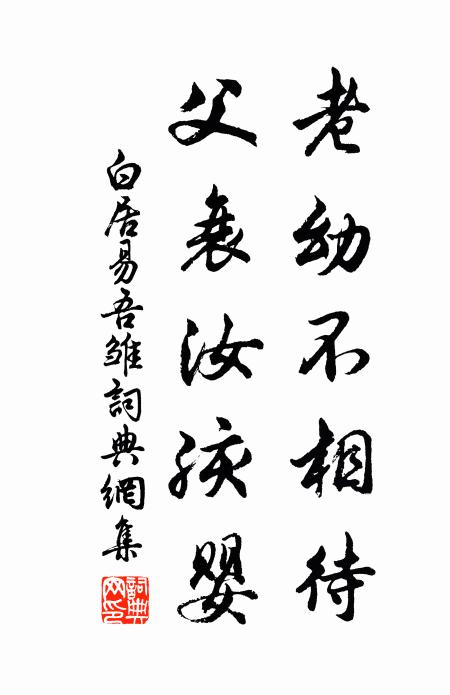 老幼不相待
父衰汝孩嬰
白居易吾雛詞典網集
詞典
网印